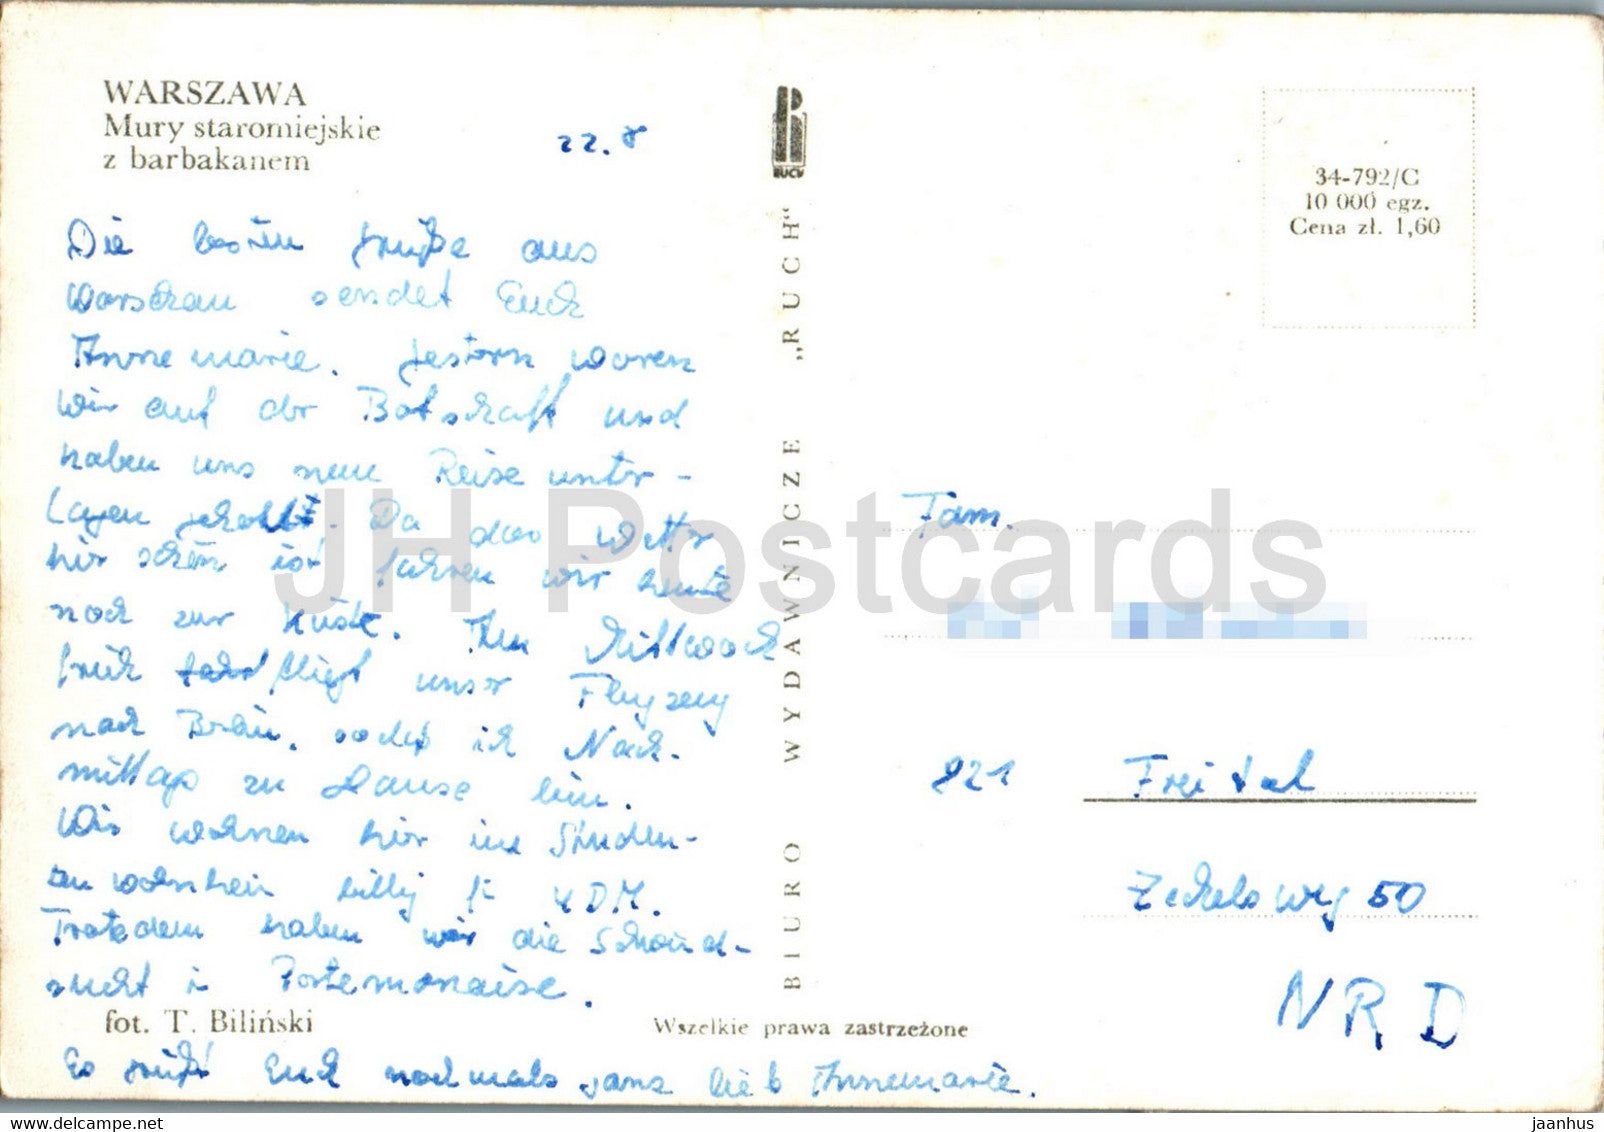 WARSZAWA
Mury staromiejskie
z barbakanem
22. 8
Die besten Grüße aus
Warschau sendet Euch
Annemarie. Gestern waren
wir auf der Botschaft und
haben uns neue Reiseunter-
lagen geholt. Da das Wetter
hier schön ist fahren wir heute
noch zur Küste. Am Mittwoch
früh fliegt unser Flugzeug
nach Berlin, sodaß ich Nach-
mittags zu Hause bin.
Wir wohnen hier im Studen-
tenwohnheim billig für 4 DM.
Trotzdem haben wir die Schwind-
sucht i Portemonaise.
fot. T. Biliński
Es grüßt Euch nochmals ganz lieb Annemarie.
RUCH
BIURO WYDAWNICZE „RUCH"
Wszelkie prawa zastrzeżone
34-792/C
10 000 egz.
Cena zł. 1,60
Fam.
821 Freital
50
NRD
JH Postcards
jaanhus @ delcampe.net